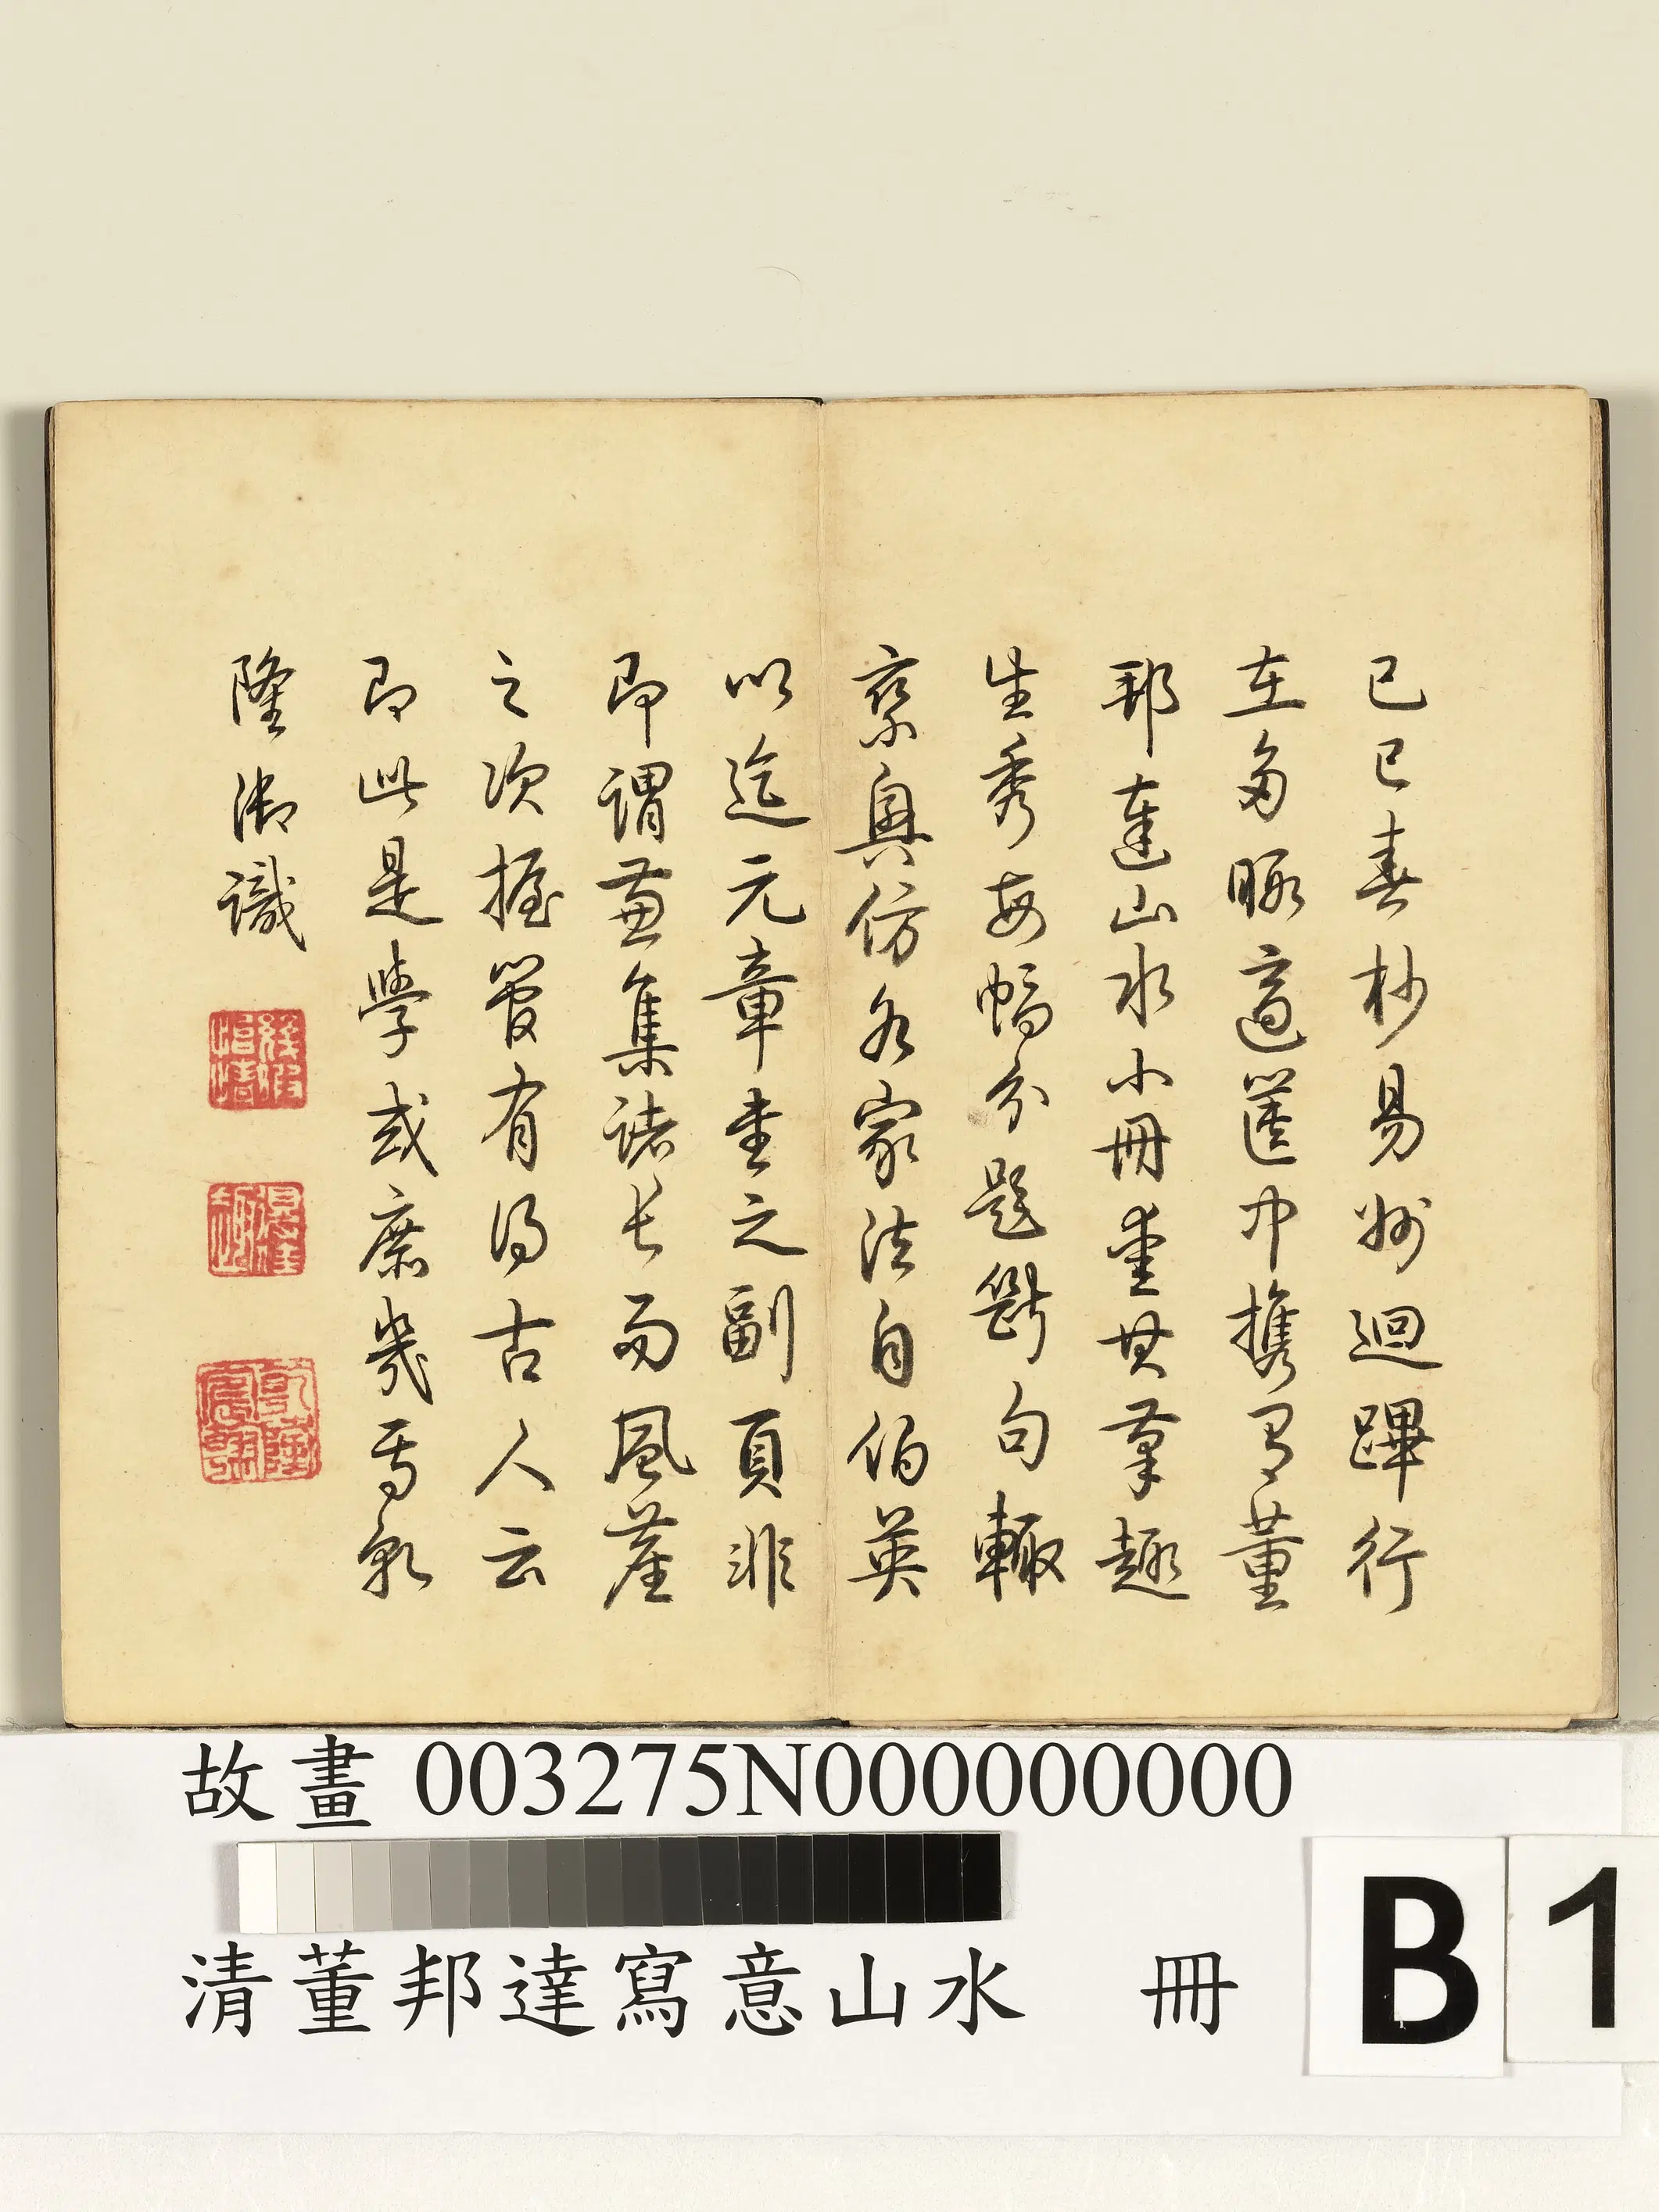 己巳春杪易州迴蹕行
在多暇適篋中攜有董
邦達山水小冊愛其筆趣
生秀每幅分題斷句輒
乘興仿各家法自伯英
以迄元章書之副頁非
即謂兼集諸長而風簷
之次握管有得古人云
即此是學或庶幾焉乾
隆御識
幾暇怡情
得佳趣
乾隆宸翰
故畫 003275N000000000
清董邦達寫意山水 冊
B 1